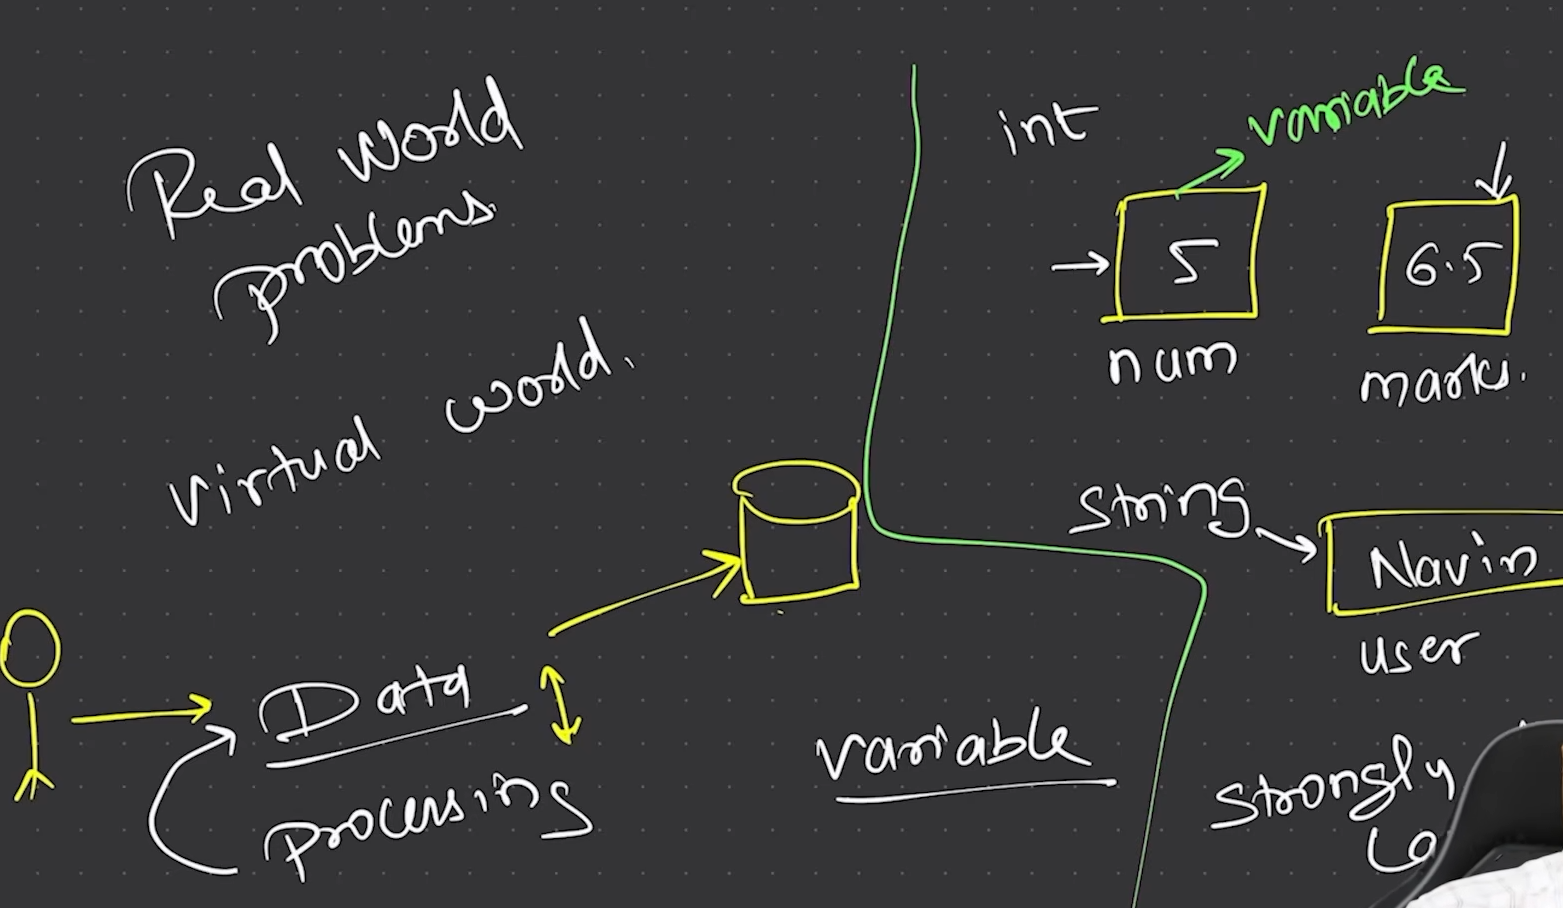 Real World
problems.
Virtual world.
Data
processing
variable
int
variable
5
num
6.5
marks.
String
Navin
user
Strongly